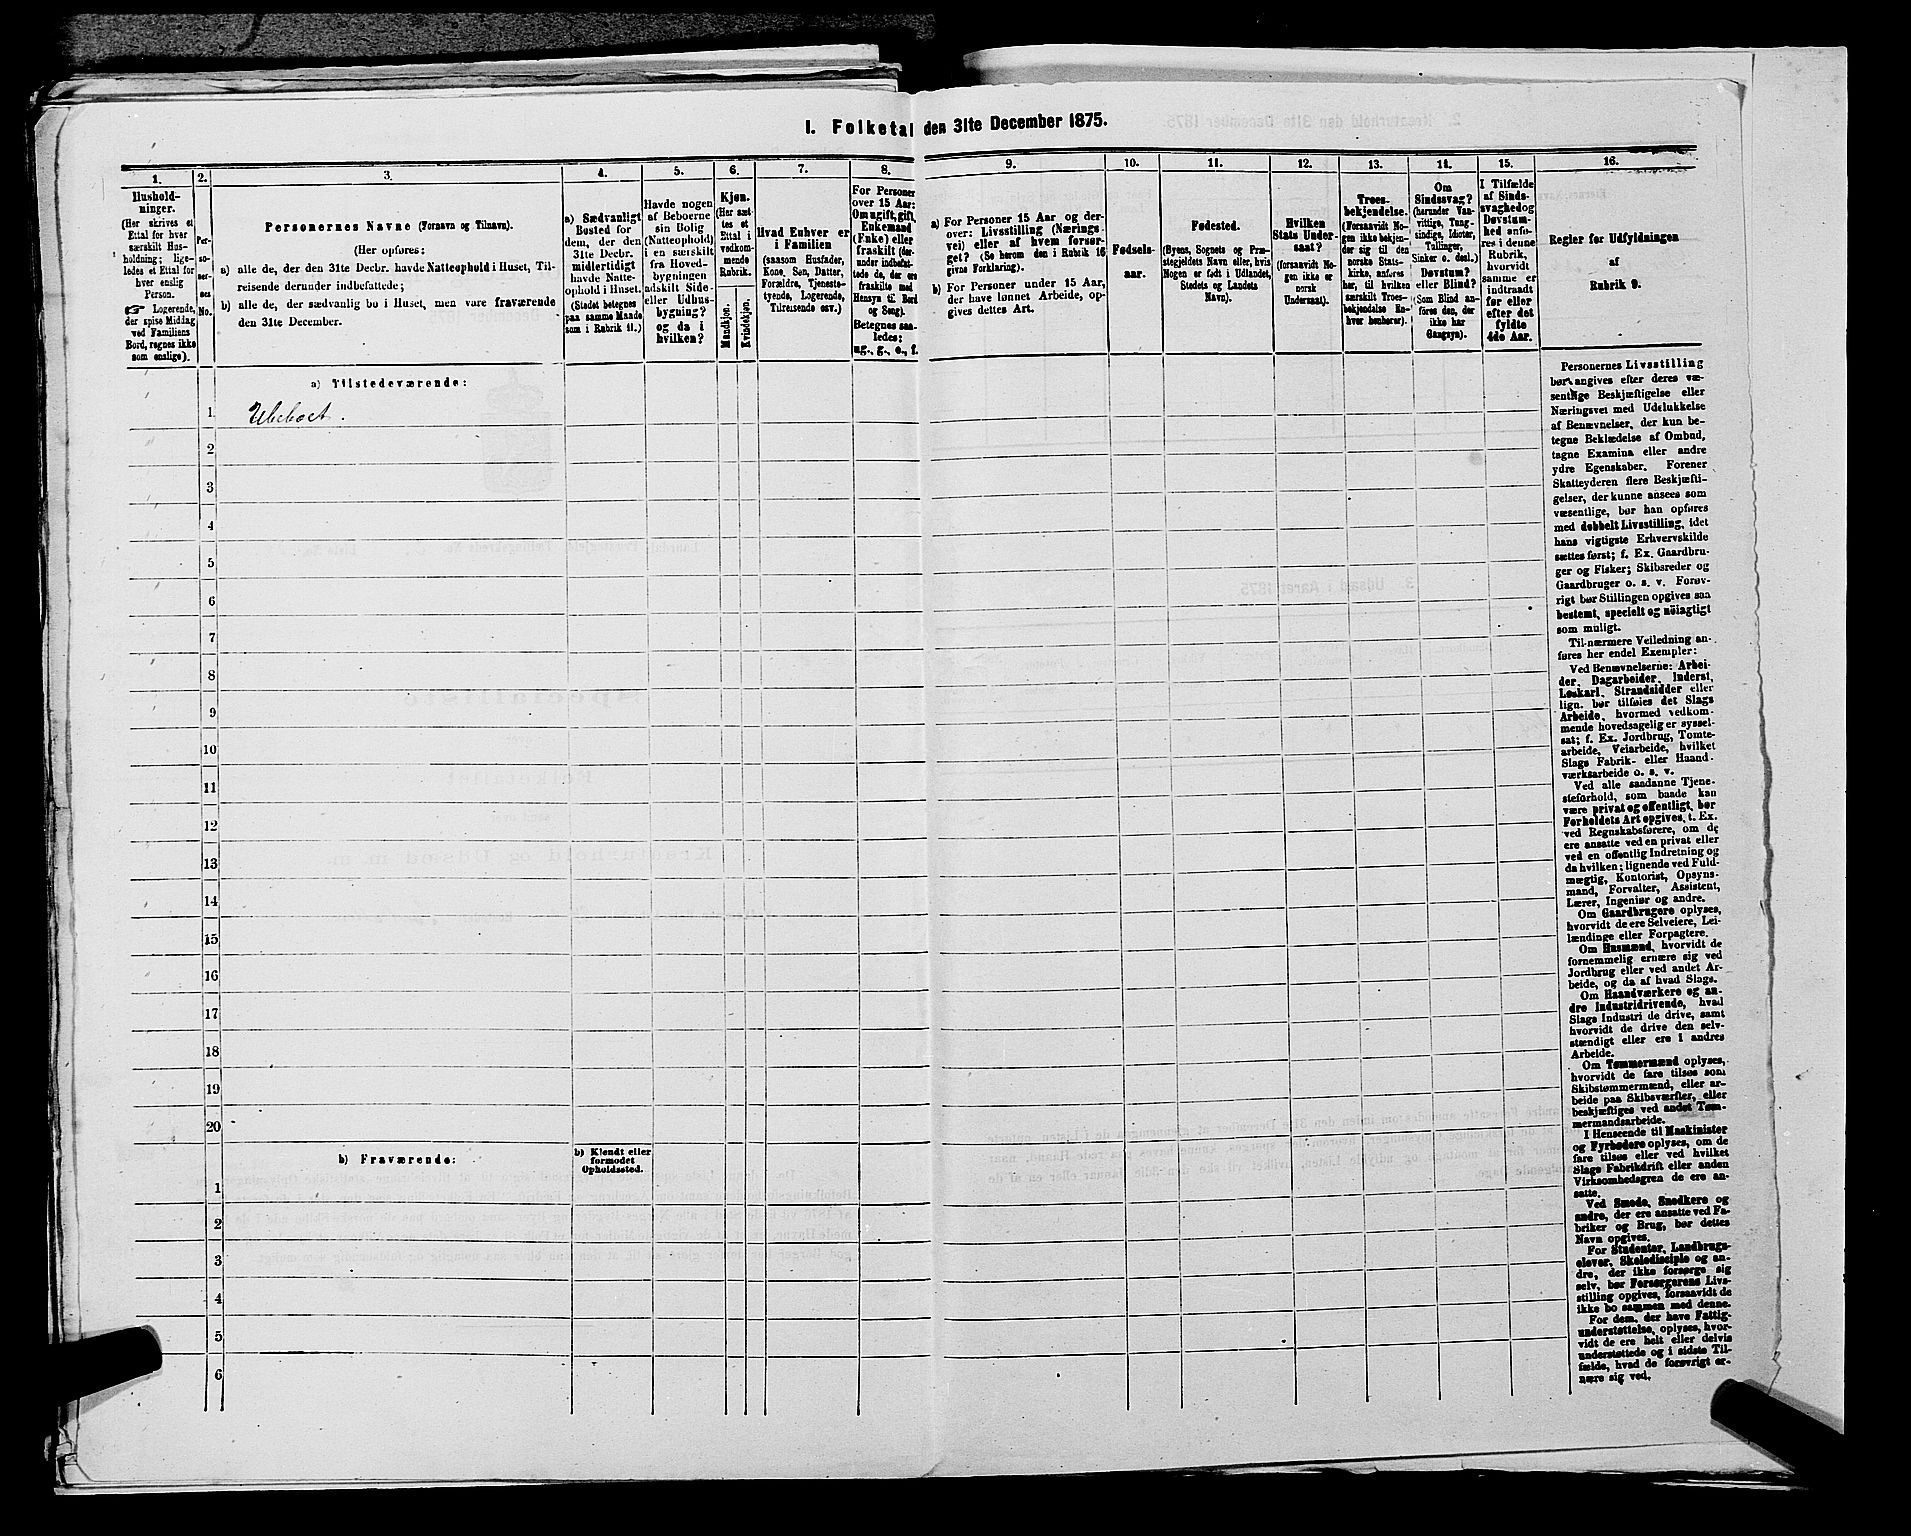 I. Folketal den 31te December 1875.
1.
Hushold-
ninger.
(Her skrives et
Ettal for hver
særskilt Hus-
holdning; lige-
ledes et Ettal for
hver enslig
Person.
☞ Logerende,
der spise Middag
ved Familiens
Bord, regnes ikke
som enslige).
2.
Per-
so-
ner-
nes
No.
3.
Personernes Navne (Fornavn og Tilnavn).
(Her opføres:
a) alle de, der den 31te Decbr. havde Natteophold i Huset, Til-
reisende derunder indbefattede;
b) alle de, der sædvanlig bo i Huset, men vare fraværende
den 31te December.
4.
a) Sædvanligt
Bosted for
dem, der den
31te Decbr.
midlertidigt
havde Natte-
ophold i Huset.
(Stedet betegnes
paa samme Maade
som i Rubrik 11.)
5.
Havde nogen
af Beboerne
sin Bolig
(Natteophold)
i en særskilt
fra Hoved-
bygningen
adskilt Side-
eller Udhus-
bygning?
og da i
hvilken?
6.
Kjøn.
(Her sæt-
tes et
Ettal i
vedkom-
mende
Rubrik.
Mandkjøn.
Kvindekjøn.
7.
Hvad Enhver er
i Familien
(saasom Husfader,
Kone, Søn, Datter,
Forældre, Tjeneste-
tyende, Logerende,
Tilreisende osv.)
8.
For Personer
over 15 Aar:
Om ugift, gift,
Enkemand
(Enke) eller
fraskilt (der-
under indbefat-
tede de, der ere
fraskilte med
Hensyn til Bord
og Seng).
Betegnes saa-
ledes:
ug., g., e., f.
9.
a) For Personer 15 Aar og der-
over: Livsstilling (Nærings-
vei) eller af hvem forsør-
get? (Se herom den i Rubrik 16
givne Forklaring).
b) For Personer under 15 Aar,
der have lønnet Arbeide, op-
gives dettes Art.
10.
Fødsels-
aar.
11.
Fødested.
(Byens, Sognets og Præ-
stegjeldets Navn eller, hvis
Nogen er født i Udlandet,
Stedets og Landets
Navn).
12.
Hvilken
Stats Under-
saat?
(forsaavidt No-
gen ikke er
norsk
Undersaat).
13.
Troes-
bekjendelse.
(Forsaavidt No-
gen ikke bekjen-
der sig til den
norske Stats-
kirke, anføres
her, til hvilken
særskilt Troes-
bekjendelse En-
hver henhører).
14.
Om
Sindssvag?
(herunder Van-
vittige, Tung-
sindige, Idioter,
Tullinger,
Sinker o. desl.)
Døvstum?
eller Blind?
(Som Blind an-
føres den, der
ikke har
Gangsyn).
15.
I Tilfælde
af Sinds-
svaghed og
Døvstum-
hed anfø-
res i denne
Rubrik,
hvorvidt
samme er
indtraadt
før eller
efter det
fyldte
4de Aar.
16.
Regler for Udfyldningen
af
Rubrik 9.
a) Tilstedeværende:
1 Ubeboet.
2
3
4
5
6
7
8
9
10
11
12
13
14
15
16
17
18
19
20
b) Fraværende:
b) Kjendt eller
formodet
Opholdssted.
1
2
3
4
5
6
Personernes Livsstilling
bør angives efter deres væ-
sentlige Beskjæftigelse eller
Næringsvei med Udelukkelse
af Benævnelser, der kun be-
tegne Beklædelse af Ombud,
tagne Examina eller andre
ydre Egenskaber. Forener
Skatteyderen flere Beskjæfti-
gelser, der kunne ansees som
væsentlige, bør han opføres
med dobbelt Livsstilling, idet
hans vigtigste Erhvervskilde
sættes først; f. Ex. Gaardbru-
ger og Fisker; Skibsreder og
Gaardbruger o. s. v. Forøv-
rigt bør Stillingen opgives saa
bestemt, specielt og nøiagtigt
som muligt.
Til nærmere Veiledning an-
føres her endel Exempler:
Ved Benævnelserne: Arbei-
der, Dagarbeider, Inderst,
Løskarl, Strandsidder eller
lign. bør tilføies det Slags
Arbeide, hvormed vedkom-
mende hovedsagelig er syssel-
sat; f. Ex. Jordbrug, Tomte-
arbeide, Veiarbeide, hvilket
Slags Fabrik- eller Haand-
værksarbeide o. s. v.
Ved alle saadanne Tjene-
steforhold, som baade kan
være privat og offentligt, bør
Forholdets Art opgives, t. Ex.
ved Regnskabsførere, om de
ere ansatte ved en privat eller
ved en offentlig Indretning og
da hvilken; lignende ved Fuld-
mægtig, Kontorist, Opsyns-
mand, Forvalter, Assistent,
Lærer, Ingeniør og andre.
Om Gaardbrugere oplyses,
hvorvidt de ere Selveiere, Lei-
lændinge eller Forpagtere.
Om Husmænd, hvorvidt de
fornemmelig ernære sig ved
Jordbrug eller ved andet Ar-
beide, og da af hvad Slags.
Om Haandværkere og an-
dre Industridrivende, hvad
Slags Industri de drive, samt
hvorvidt de drive den selv-
stændigt eller ere i andres
Arbeide.
Om Tømmermænd oplyses,
hvorvidt de fare tilsøs som
Skibstømmermænd, eller ar-
beide paa Skibsværfter, eller
beskjæftiges ved andet Tøm-
mermandsarbeide.
I Henseende til Maskinister
og Fyrbødere oplyses, om de
fare tilsøs eller ved hvilket
Slags Fabrikdrift eller anden
Virksomhedsgren de ere an-
satte.
Ved Smede, Snedkere og
andre, der ere ansatte ved Fa-
briker og Brug, bør dettes
Navn opgives.
For Studenter, Landbrugs-
elever, Skoledisciple og an-
dre, der ikke forsørge sig
selv, bør Forsørgerens Livs-
stilling opgives, forsaavidt de
ikke bo sammen med denne.
For dem, der have Fattig-
understøttelse, oplyses, hvor-
vidt de ere helt eller delvis
understøttede og i sidste Til-
fælde, hvad de forøvrigt er-
nære sig ved.